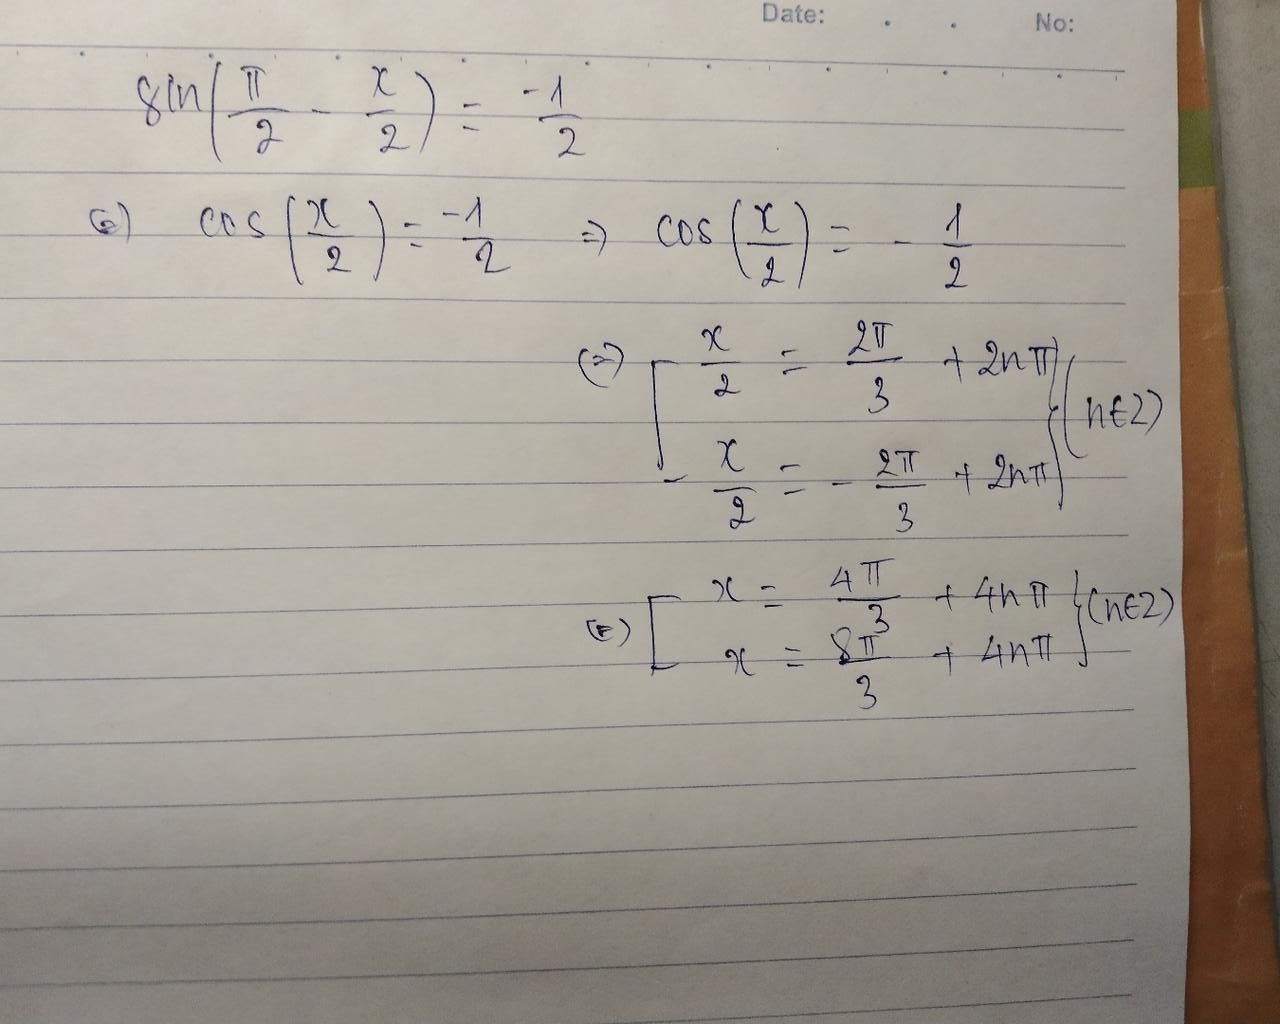 Date: . . No:
sin(π/2 - x/2) = -1/2
(=) cos(x/2) = -1/2 => cos(x/2) = - 1/2
(=) [ x/2 = 2π/3 + 2nπ
x/2 = - 2π/3 + 2nπ } (n∈Z)
(=) [ x = 4π/3 + 4nπ
x = 8π/3 + 4nπ } (n∈Z)